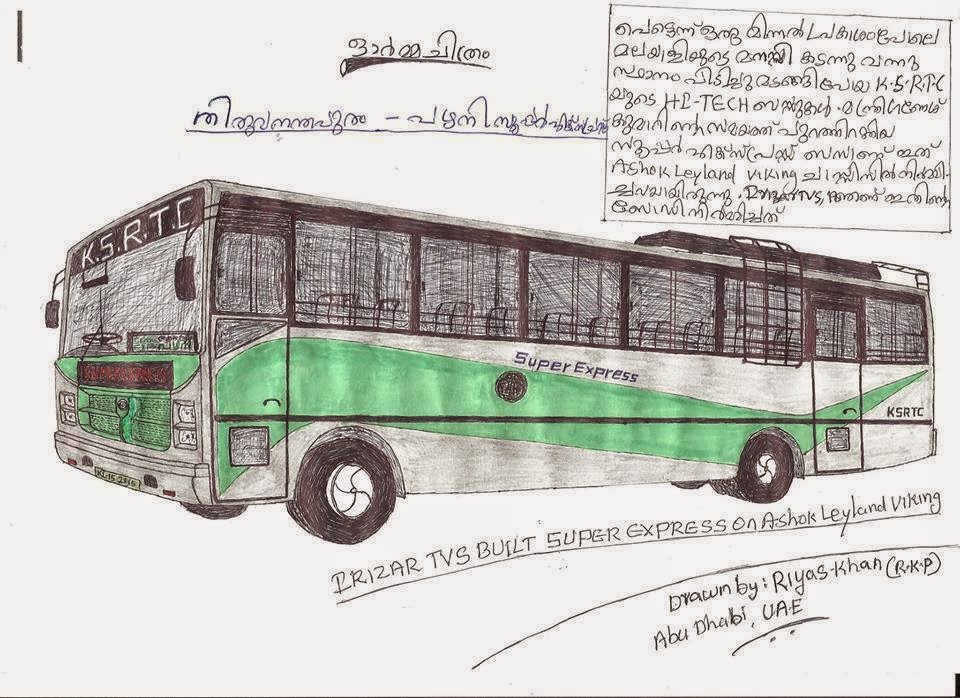 ഓർമ്മചിത്രം
തിരുവനന്തപുരം - പഴനി സൂപ്പർ എക്സ്പ്രസ്സ്
പെട്ടെന്ന് ഒരു മിന്നൽ പ്രകാശംപോലെ
മലയാളിയുടെ മനസ്സിൽ കടന്നു വന്നു
സ്ഥാനം പിടിച്ചു മടങ്ങിപോയ K.S.R.T.C
യുടെ HI-TECH ബസ്സുകൾ. മന്ത്രി ഗണേശ്
കുമാറിന്റെ സമയത്ത് പുറത്തിറക്കിയ
സൂപ്പർ എക്സ്പ്രസ്സ് ബസാണ് ഇത്
Ashok Leyland Viking ചാസ്സിസിൽ നിർമ്മി-
ച്ചവയായിരുന്നു. TVS, ആണ് ഇതിന്റെ
ബോഡി നിർമ്മിച്ചത്
K.S.R.T.C
SUPER EXPRESS
Super Express
KSRTC
KL-15 2516
PRIZAR TVS BUILT SUPER EXPRESS On Ashok Leyland Viking
Drawn by: Riyas Khan (R.K.P)
Abu Dhabi, UAE